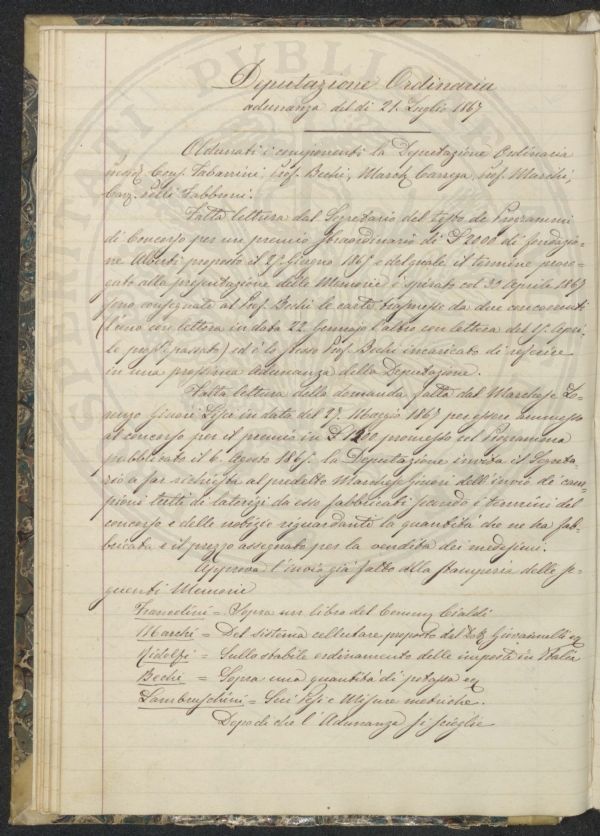 Deputazione Ordinaria
adunanza del dì 21. Luglio 1867
Adunati i componenti la Deputazione Ordinaria
Tabarrini, prof. Bechi, March. Carrega, prof. Marchi,
Cav. Pelli Fabbroni.
Fatta lettura dal Segretario del tipo de Programmi
di Concorso per un premio straordinario di £ 2000 di fondazio-
ne Alberti proposto il 29 Giugno 1865 e del quale il termine proro-
gato alla presentazione delle Memorie è spirato col 30 Aprile 1867
sono consegnate al Prof. Bechi le carte trasmesse da due concorrenti
(l'uno con lettera in data 22. Gennajo l'altro con lettera del 15. Apri-
le pross.° passato) ed è lo stesso Prof. Bechi incaricato di referire
in una prossima Adunanza della Deputazione.
Fatta lettura della domanda fatta dal Marchese Lo-
renzo Ginori Lisci in data del 27. Maggio 1867 per essere ammesso
al concorso per il premio in £ 1200 promesso col Programma
pubblicato il 6. Agosto 1865. la Deputazione invita il Segreta-
rio a far richiesta al predetto Marchese Ginori dell'invio de' cam-
pioni tutti di laterizi da esso fabbricati secondo i termini del
concorso e delle notizie riguardanti la quantità che ne ha fab-
bricata e il prezzo assegnato per la vendita dei medesimi.
Approva l'invio già fatto alla stamperia delle se-
guenti Memorie
Franceschini = Sopra un libro del Comm. Cialdi
Marchi = Del sistema cellulare proposto del Dott. Giovannelli ec
Ridolfi = Sullo stabile ordinamento delle imposte in Italia
Bechi = Sopra una quantità di potassa ec
Lambruschini = Sui Pesi e Misure metriche.
Dopo di che l'Adunanza si scioglie